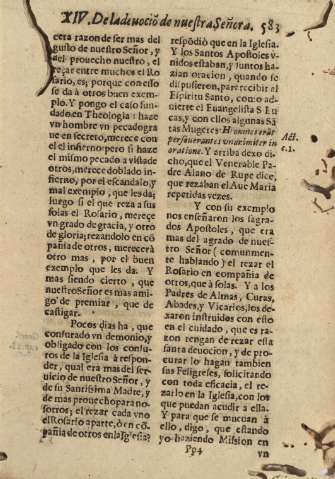 XIV. De la deuoció de nuestra Señora. 583
cera razon de ser mas del
gusto de nuestro Señor, y
del prouecho nuestro, el
reçar entre muchos el Ro
sario, es; porque con esso
se da à otros buen exem-
plo. Y pongo el caso fun-
dado en Theologia: haze
vn hombre vn pecado gra
ue en secreto, merece con
el vn infierno: pero si haze
el mismo pecado a vista de
otros, merece doblado in-
fierno, por el escandalo, y
mal exemplo, que les da;
luego si el que reza a sus
solas el Rosario, mereçe
vn grado de gracia, y otro
de gloria; rezandolo en cõ
pañia de otros, merecerà
otro mas, por el buen
exemplo que les da. Y
mas siendo cierto, que
nuestro Señor es mas ami-
go de premiar, que de
castigar.
Pocos dias ha, que
conjurado vn demonio, y
obligado con los conju-
ros de la Iglesia à respon-
der, qual era mas del ser-
uicio de nuestro Señor, y
de su Santissima Madre, y
de mas prouecho para no-
sotros; el rezar cada vno
el Rosario aparte, ò en cõ
pañia de otros en la Iglesia?
respõdiò que en la Iglesia.
Y los Santos Apostoles v-
nidos estaban, y juntos ha-
zian oracion, quando se
dispusieron, para recibir el
Espiritu Santo, como ad-
uierte el Euangelista S Lu
cas, y con ellos algunas Sã
tas Mugeres: Hi omnes erãt
perseuerantes vnanimiter in
oratione. Y arriba dexo di-
cho, que el Venerable Pa-
dre Alano de Rupe dice,
que rezaban el Aue Maria
repetidas vezes.
Act.
c.1.
Y con su exemplo
nos enseñaron los sagra-
dos Apostoles, que era
mas del agrado de nues-
tro Señor (comunmen-
te hablando) el rezar el
Rosario en compañia de
otros, que à solas. Y a los
Padres de Almas, Curas,
Abades, y Vicarios, los de-
xaron instruidos con esto
en el cuidado, que es ra-
zon tengan de rezar esta
santa deuocion, y de pro-
curar lo hagan tambien
sus Feligreses, solicitando
con toda eficacia, el re-
zarlo en la Iglesia, con los
que puedan acudir a ella.
Y para que se mueuan à
ello, digo, que estando
yo haziendo Mission en
Pp4
vn